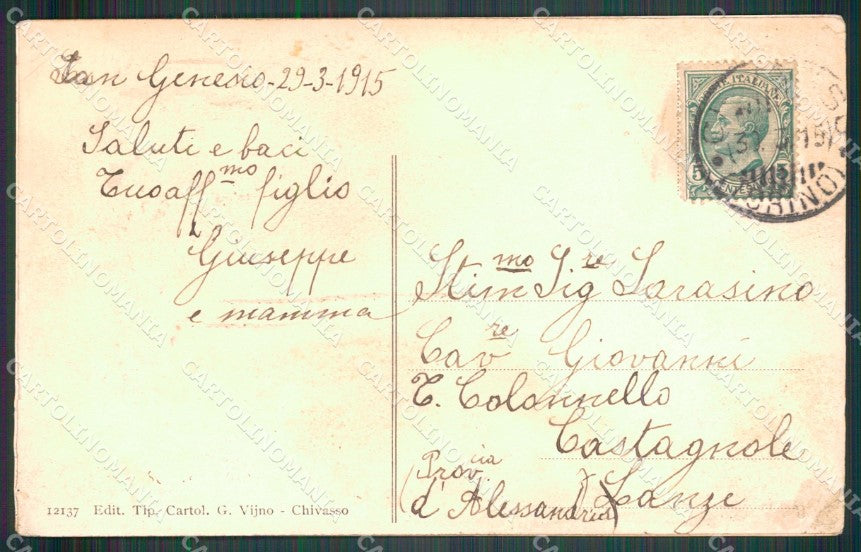 San Genesio - 29-3-1915
Saluti e baci
Tuo aff.mo figlio
Giuseppe
e mamma
Stim.mo Sig.re Sarasino
Cav.re Giovanni
T. Colonnello
Castagnole
Lanze
(Prov.cia
d'Alessandria)
12137 Edit. Tip. Cartol. G. Vijno - Chivasso
CARTOLINOMANIA